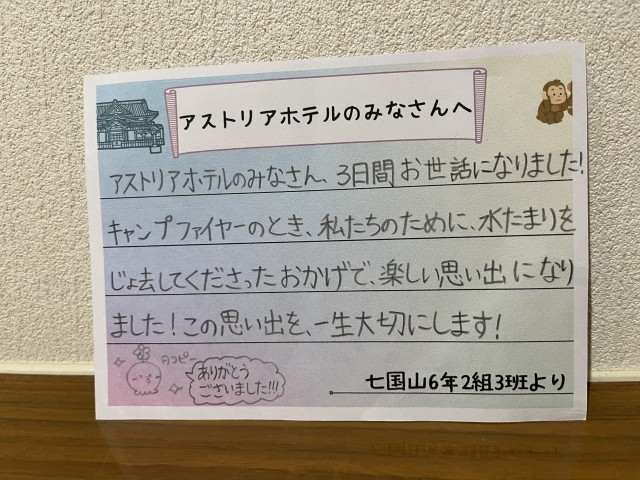 アストリアホテルのみなさんへ
アストリアホテルのみなさん、3日間お世話になりました!
キャンプファイヤーのとき、私たちのために、水たまりを
じょ去してくださったおかげで、楽しい思い出になり
ました!この思い出を、一生大切にします!
タコピー
ありがとう
ございました!!!
七国山6年2組3班より